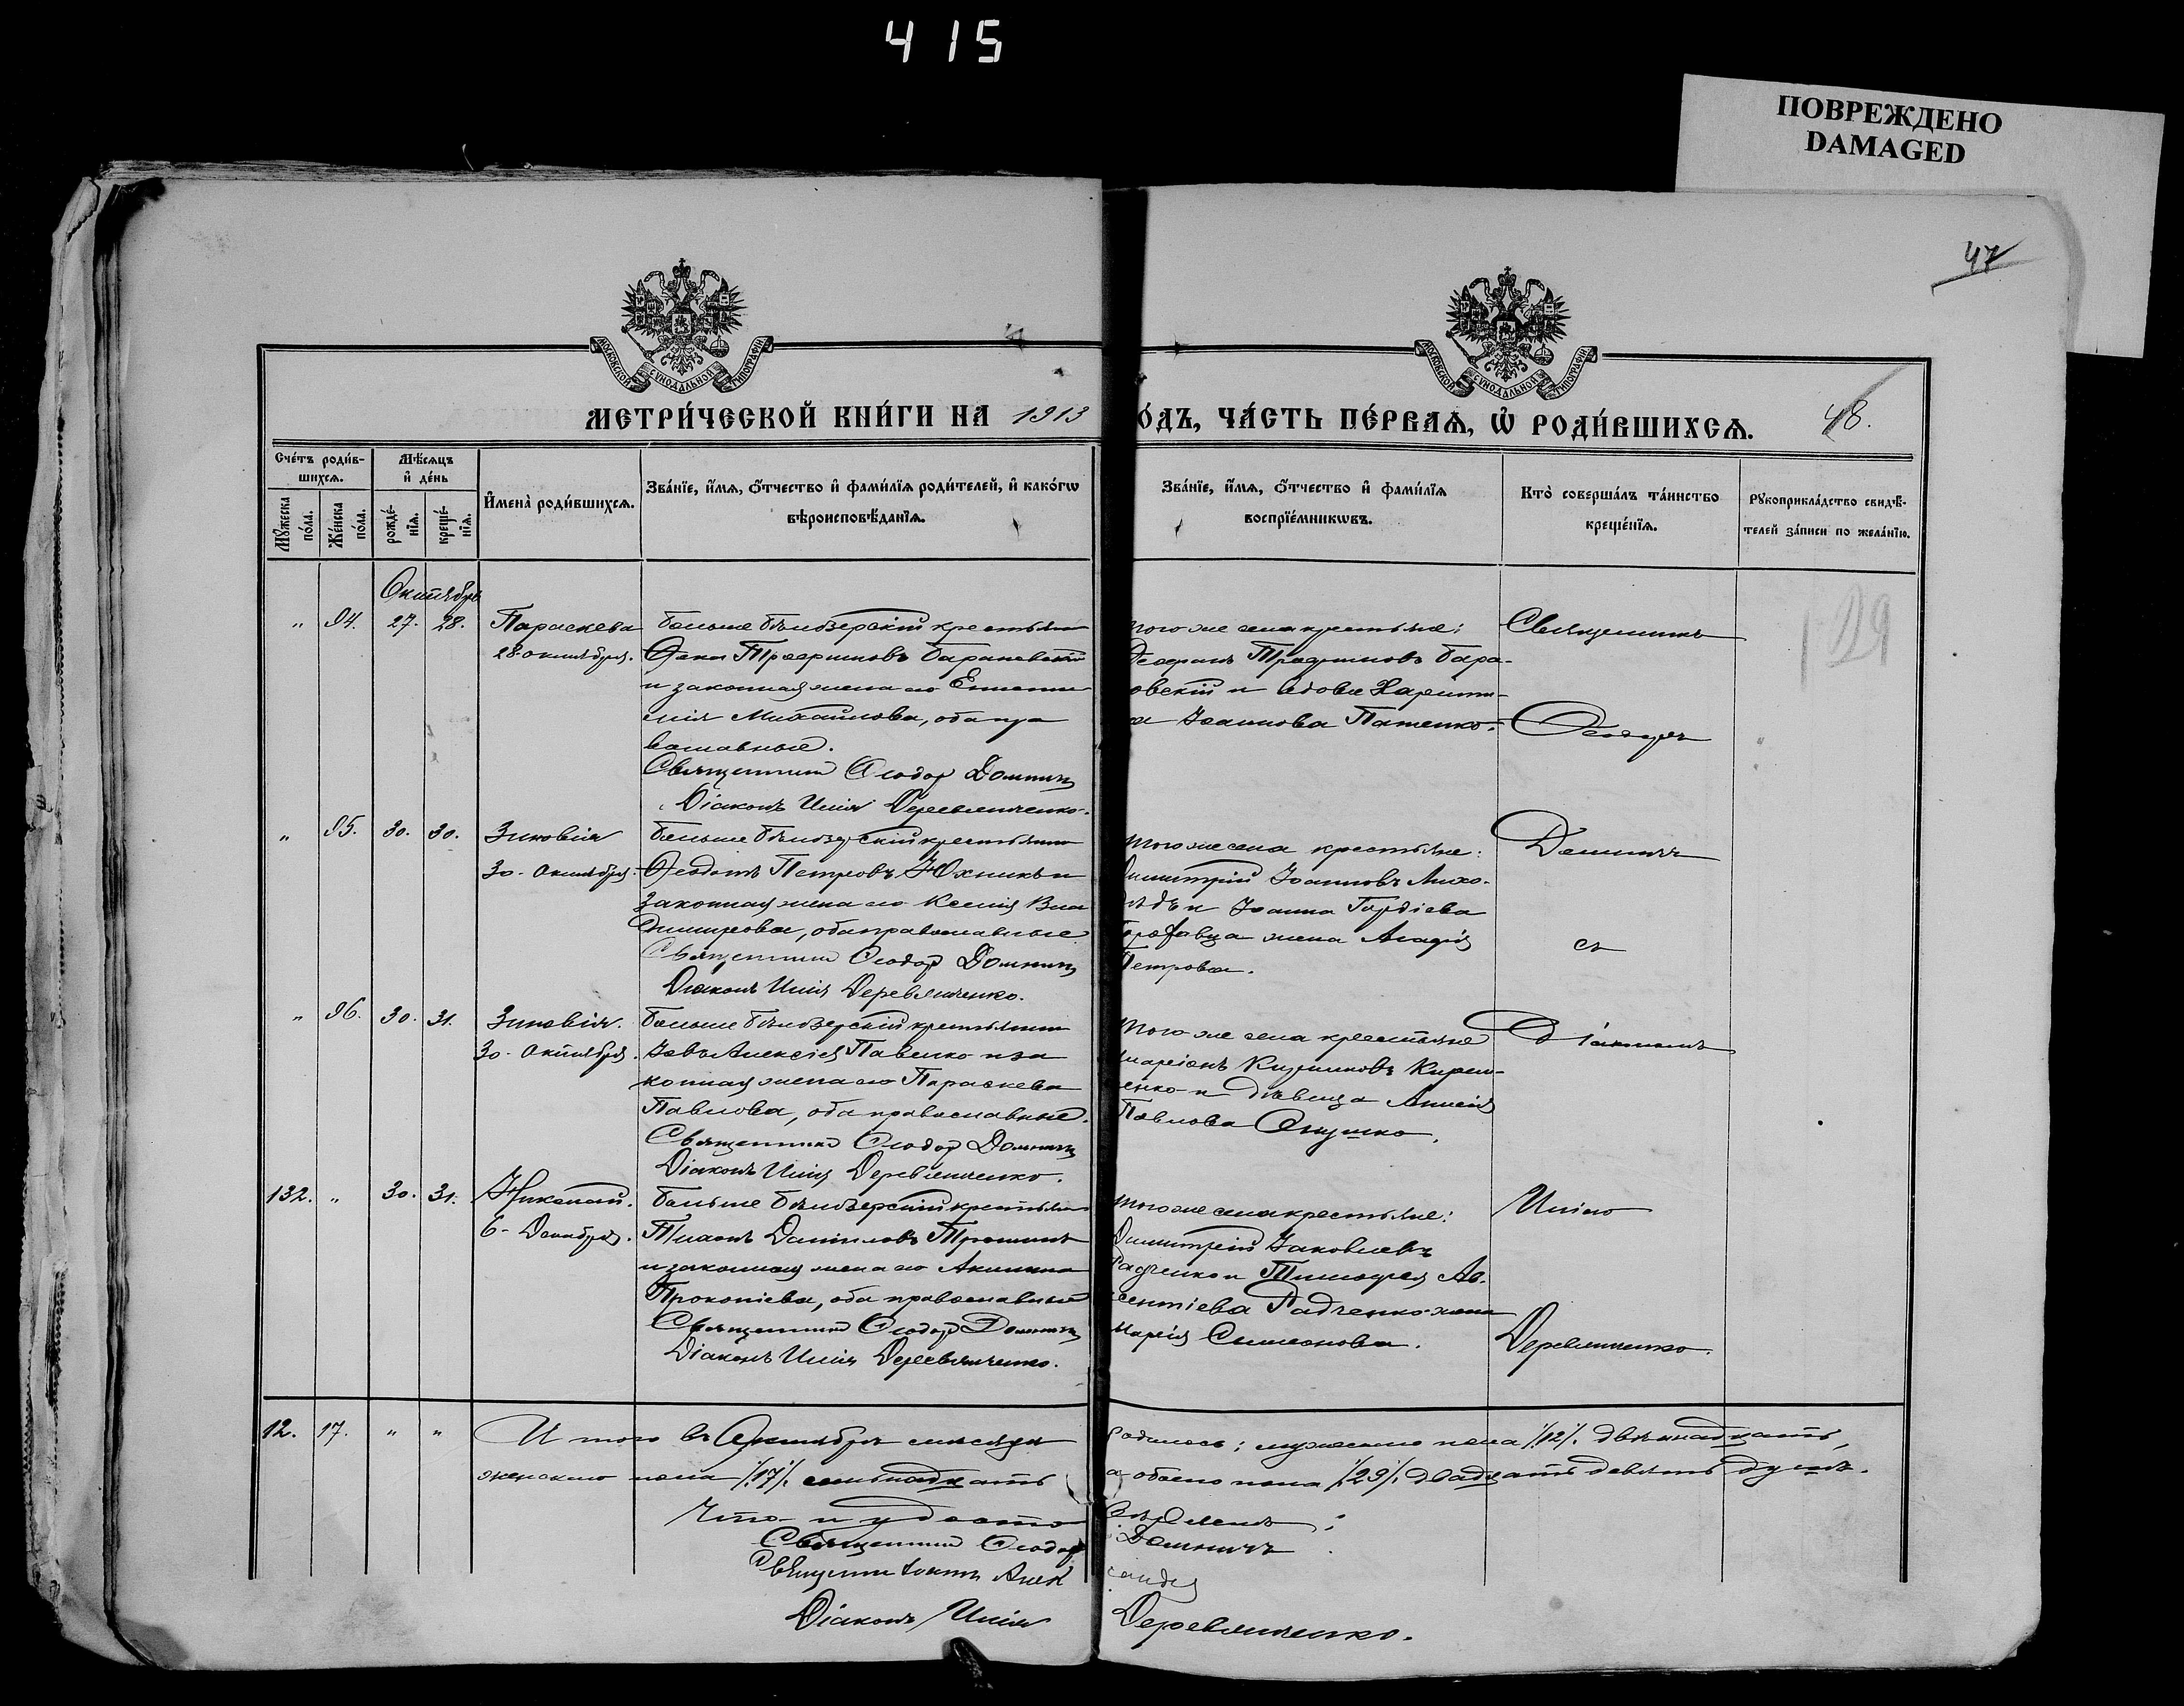 415
ПОВРЕЖДЕНО
DAMAGED
47
МОСКОВСКОЙ СУНОДАЛЬНОЙ ТИПОГРАФІИ
МОСКОВСКОЙ СУНОДАЛЬНОЙ ТИПОГРАФІИ
МЕТРИ́ЧЕСКОЙ КНИ́ГИ НА 1913
О́ДЪ, ЧА́СТЬ ПЕ́РВАѦ, Ѡ҆ РОДИ́ВШИХСѦ.
48.
Сче́тъ роди́в-
шихсѧ.
Мꙋ́жеска по́ла.
Же́нска по́ла.
Мѣ́сѧцъ
и҆ де́нь
рожде́-
нїѧ.
креще́-
нїѧ.
И҆мена̀ роди́вшихсѧ.
Зва́нїе, и҆́мѧ, ѻ҆́тчество и҆ фами́лїѧ роди́телей, и҆ како́гѡ
вѣроисповѣ́данїѧ.
Зва́нїе, и҆́мѧ, ѻ҆́тчество и҆ фами́лїѧ
воспрїе́мникѡвъ.
Кто̀ соверша́лъ та́инство
креще́нїѧ.
Рꙋкоприкла́дство свидѣ́-
телей за́писи по жела́нїю.
129
Октябрь
" 94. 27. 28. Параскева
28 октября.
Больше Бѣлозерскій крестьянин
Трофимовъ Барановскій
и законная жена его
Михайлова, оба пра
вославные.
Священникъ Ѳеодор Домнич
Діаконъ Илія Деревянченко.
того же села крестьяне:
Трофимовъ Бара-
овскій и вдова Харити-
а Іоаннова Патенко.
Священникъ
Ѳеодоръ
" 95. 30. 30. Зиновія
30 октября.
Больше Бѣлозерскій крестьянин
Ѳеодотъ Петровъ Юхникъ и
законная жена его Ксенія Вла
димирова, оба православные
Священникъ Ѳеодор Домнич
Діаконъ Илія Деревянченко.
того же села крестьяне:
Димитрій Іоанновъ Лихо-
ѣдъ и Іоанна Гордіева
жена Агафія
Петрова.
Домничъ
съ
" 96. 30. 31. Зиновія.
30 октября.
Больше Бѣлозерскій крестьянин
Павелко и за
конная жена его Параскева
Павлова, оба православные.
Священникъ Ѳеодор Домнич
Діаконъ Илія Деревянченко.
того же села крестьяне
ларіонъ
енко и дѣвица
Павлова
Діакономъ
132. " 30. 31. Николай.
6 Декабря.
Больше Бѣлозерскій крестьянин
Тихонъ Даниловъ
и законная жена его Акилина
Прокопіева, оба православные
Священникъ Ѳеодор Домнич
Діаконъ Илія Деревянченко.
того же села крестьяне:
Димитрій Іаковлевъ
Радченко и Тимоѳея Ав-
сентіева Радченко жена
Марія Симеонова.
Иліею
Деревянченко.
12. 17. " " Итого въ Октябрѣ мѣсяцѣ
родилось: мужеского пола /12/. двѣнадцать,
женского пола /17/. семнадцать
а обоего пола /29/. двадцать девять душъ.
Что и удосто
вѣряемъ:
Священникъ Ѳеодор
Домничъ
Діаконъ Илія
Деревянченко.